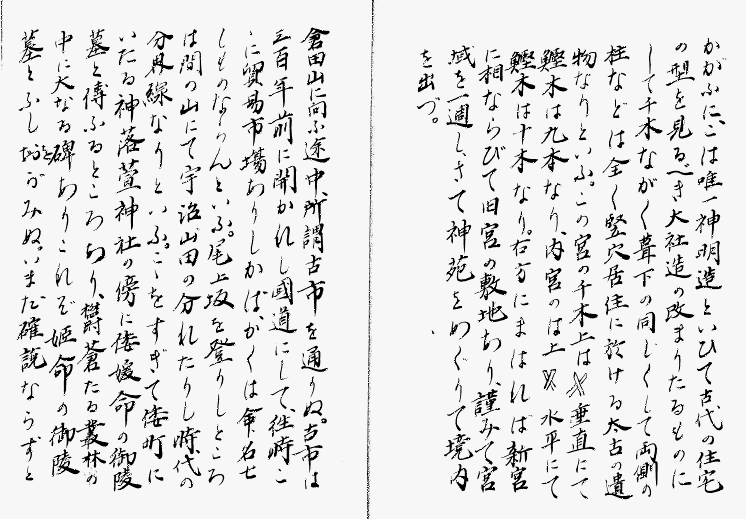 かがふに、こは唯一神明造といひて古代の住宅
の型を見るべき大社造の改まりたるものに
して千木ながく葺下の同じくして両側の
柱などは全く竪穴居住に於ける太古の遺
物なりといふ。この宮の千木上は垂直にて
鰹木は九本なり、内宮のは上水平にて
鰹木は十本なり。右方にまはれば新宮
に相ならびて旧宮の敷地あり、謹みて宮
域を一週し、さて神苑をめぐりて境内
を出づ。
倉田山に向ふ途中、所謂古市を通りぬ。古市は
三百年前に開かれし國道にして、往時こ
に貿易市場ありしかばかくは命名七
しものならんといふ。尾上坂を登りしところ
は間の山にて宇治山田の分れたりし時代の
分界線なりといふ。こゝをすぎて倭町に
いたる神落萱神社の傍に倭媛命の御陵
墓と傳ふるところあり、欝蒼たる叢林の
中に大なる碑ありこれぞ姫命の御陵
墓とふし拝がみぬ。いまだ確説ならずと